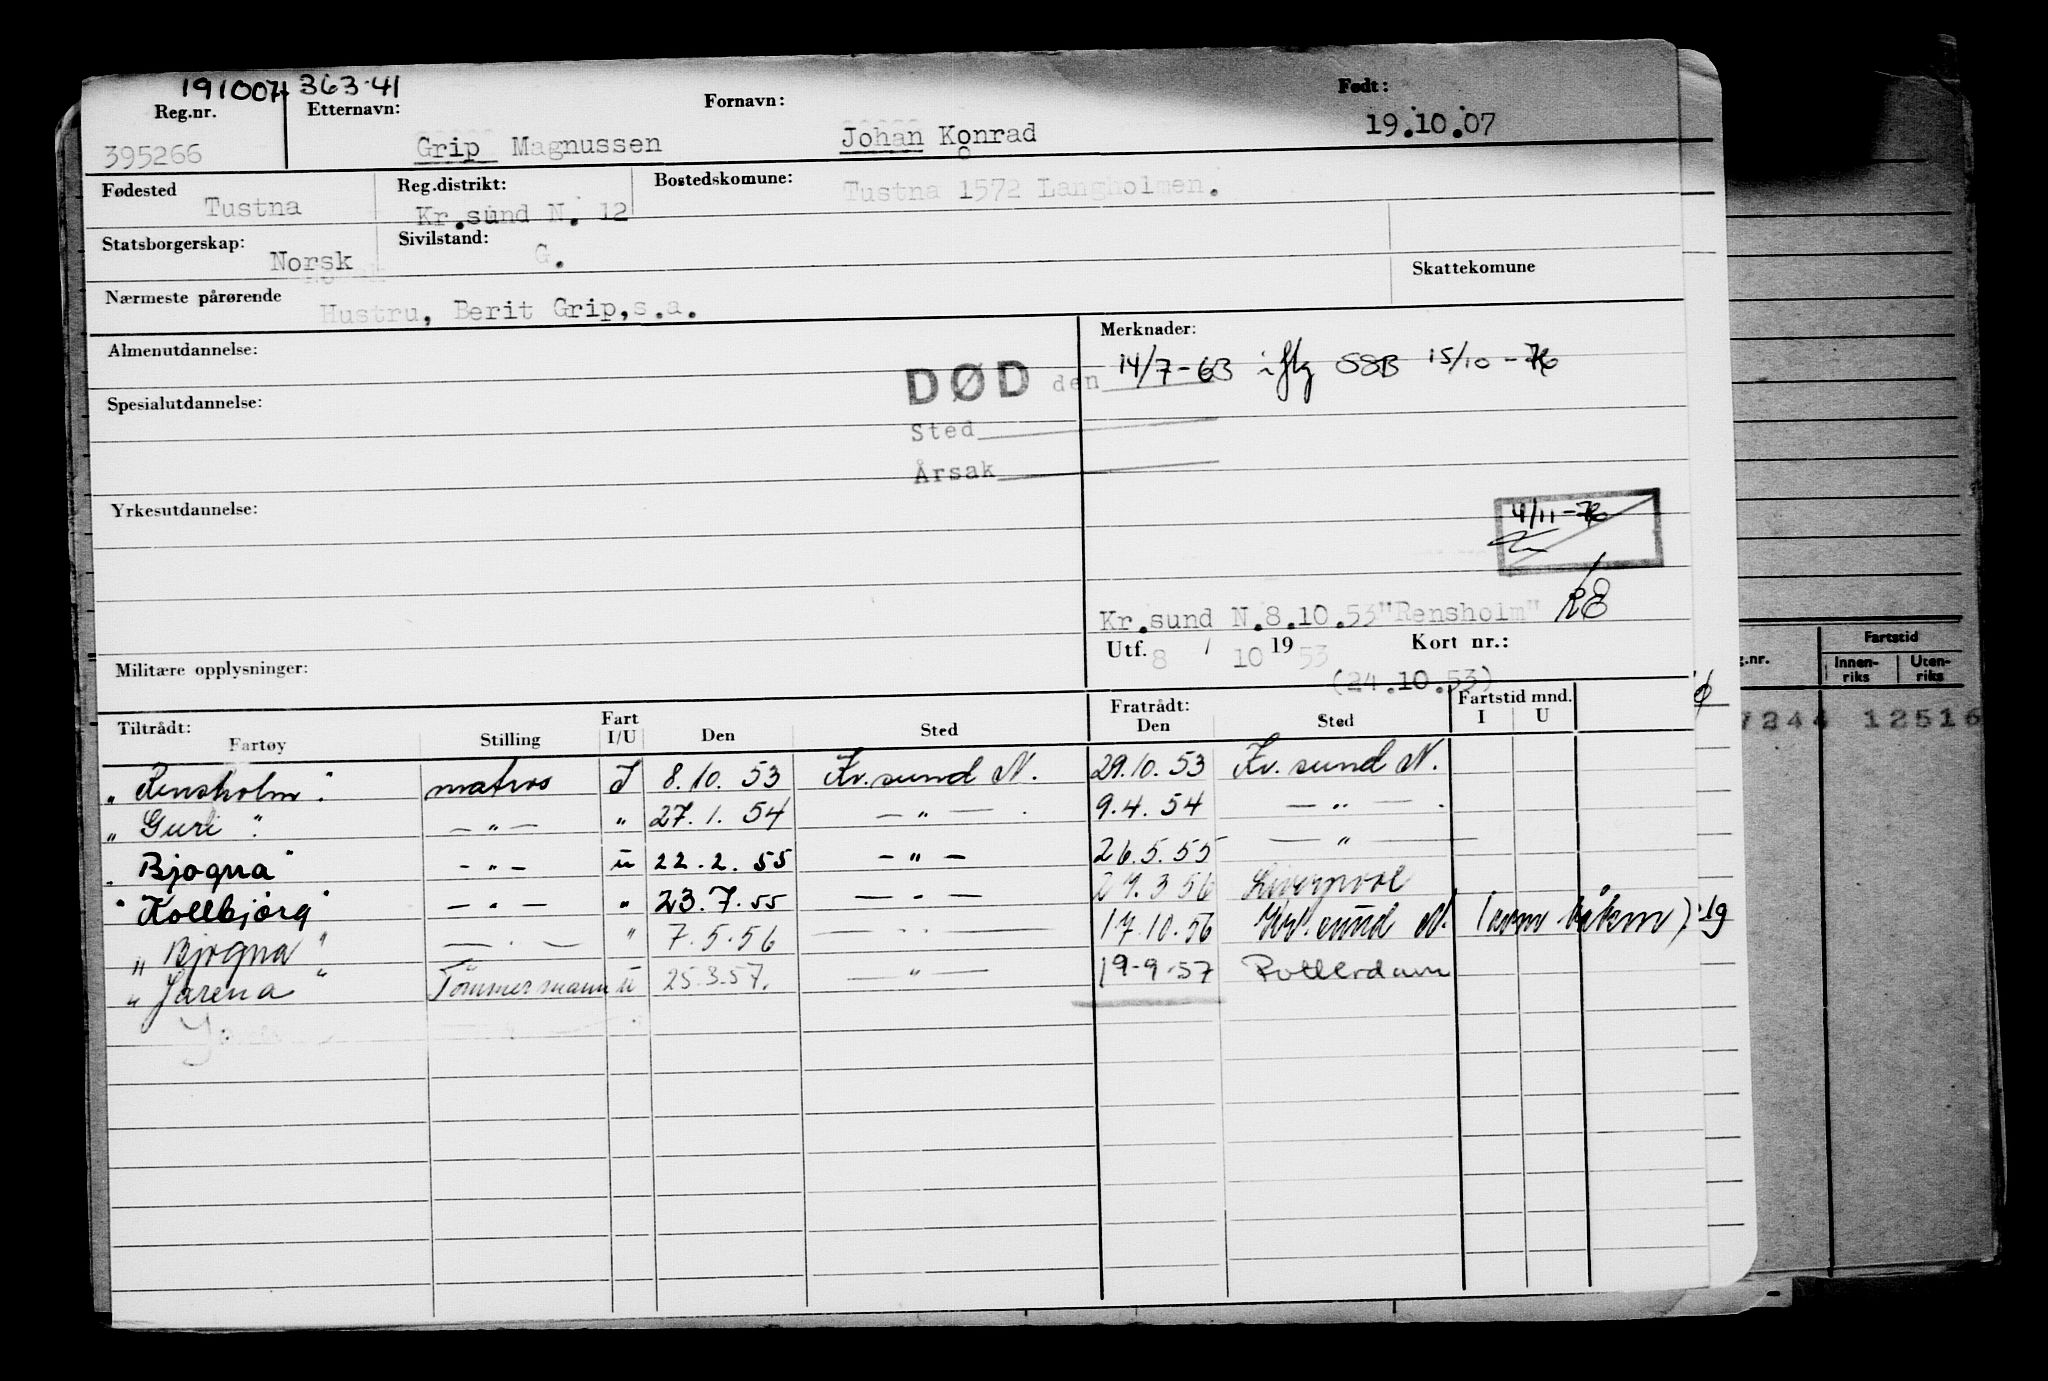 191007 363.41
Reg.nr. Etternavn: Fornavn: Født:
395266 Grip Magnussen Johan Konrad 19.10.07
Fødested Reg.distrikt: Bostedskomune:
Tustna Kr.sund N. 12 Tustna 1572 Langholmen.
Statsborgerskap: Sivilstand:
Norsk G. Skattekomune
Nærmeste pårørende
Hustru, Berit Grip,s.a.
Almenutdannelse: Merknader:
DØD den 14/7-63 iflg SSB 15/10-76
Spesialutdannelse:
Sted
Årsak
Yrkesutdannelse: 4/11-76
Kr.sund N.8.10.53"Rensholm" RE
Utf. 8 / 10 19 53 Kort nr.:
Militære opplysninger: (24.10.53)
Tiltrådt: Fart Fratrådt: Fartstid mnd.
Fartøy Stilling I/U Den Sted Den Sted I U
"Rensholm". matros I 8.10.53 Kr.sund N. 29.10.53 Kr.sund N.
"Guri". — " — " 27.1.54 — " — . 9.4.54 — " — .
"Bjogna" - " - u 22.2.55 - " - 26.5.55 — " —
"Kollbjørg" - " - " 23.7.55 - " - 27.3.56 Liverpool
"Bjogna" — " — " 7.5.56 — " — 17.10.56 Kr.sund N.
"Jarena" Tømmermann u 25.3.57. — " — 19-9-57 Rotterdam
g.nr. Fartstid
Innen-riks Uten-riks
7244 12516